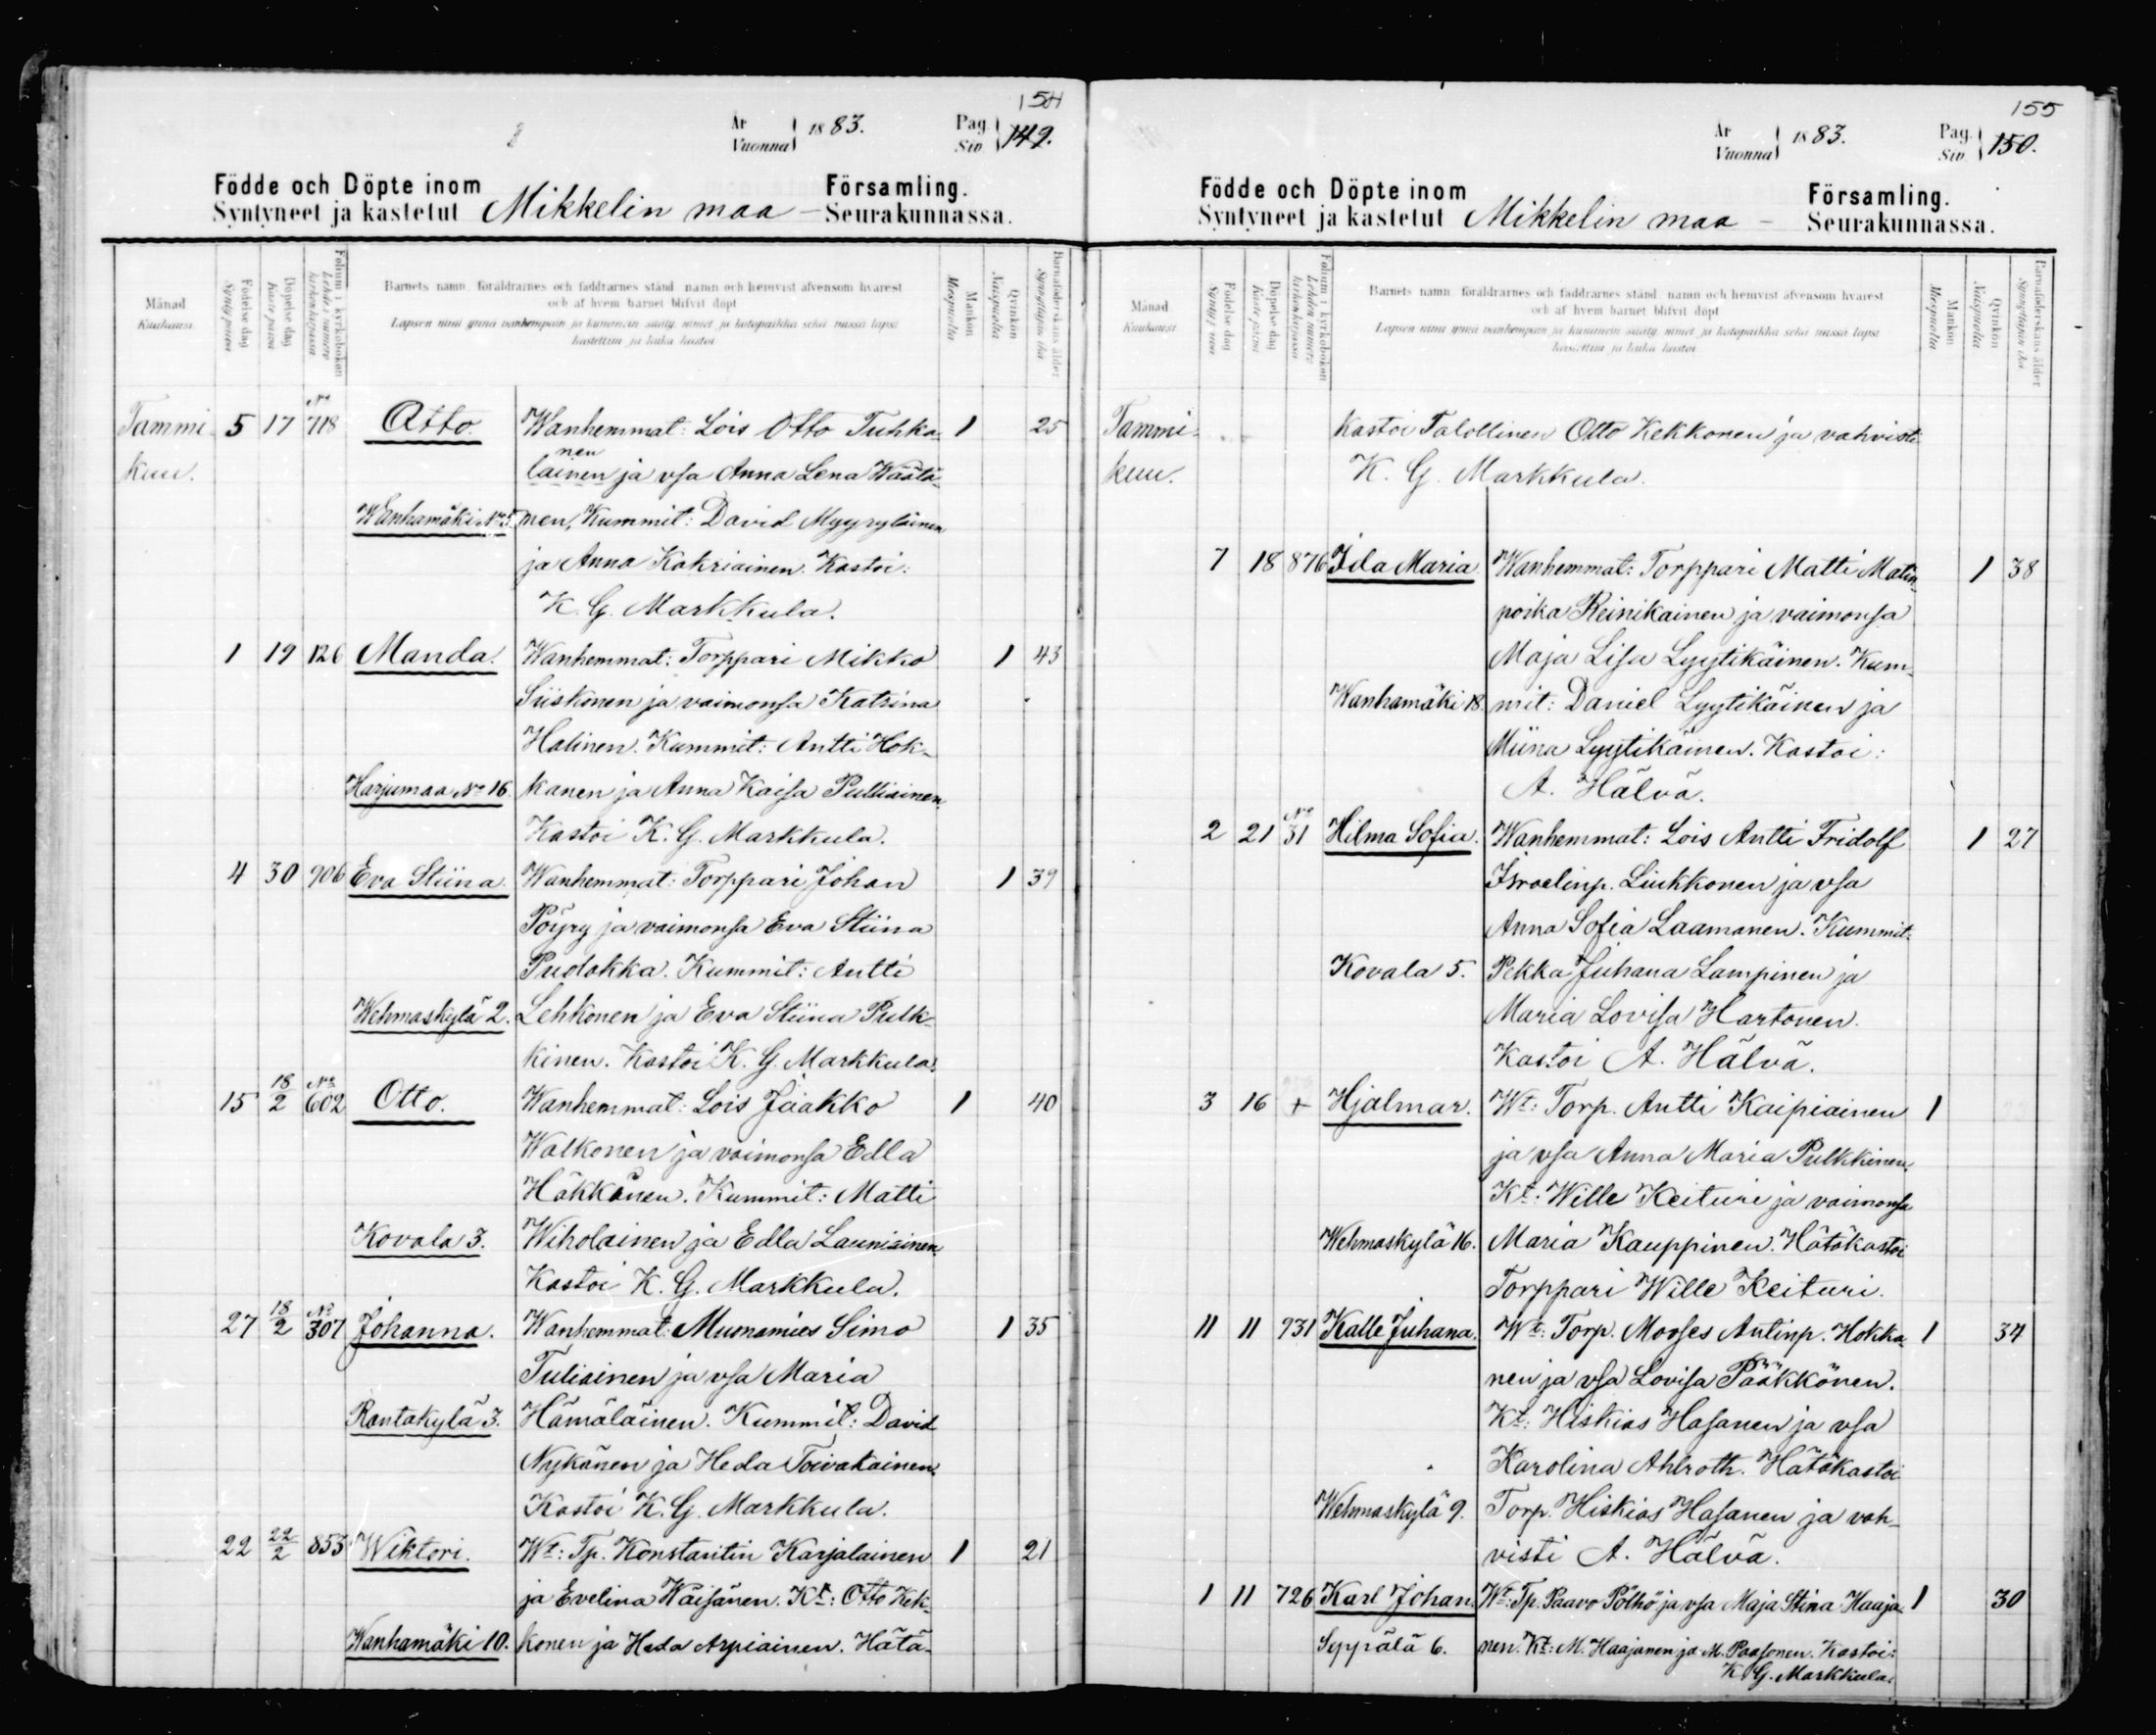 154
År
Vuonna 1883.
Pag.
Siv. 149.
Födde och Döpte inom Församling.
Syntyneet ja kastetut Mikkelin maa – Seurakunnassa.
Månad
Kuukausi
Födelse dag
Synty päivä
Döpelse dag
Kaste päivä
Folium i kyrkoboken
Lehden numero kirkonkirjassa
Barnets namn, föräldrarnes och faddrarnes stånd, namn och hemvist äfvensom hvarest
och af hvem barnet blifvit döpt
Lapsen nimi ynnä vanhempain ja kummein sääty, nimet ja kotopaikka sekä missä lapsi
kastettiin ja kuka kastoi
Mankön
Miespuolia
Qvinkön
Naispuolia
Barnaföderskans ålder
Synnyttäjän ikä
Tammi- 5 17 No 718 Otto. Wanhemmat: Lois Otto Tuhka- 1 25
nen
kuu. lainen ja vsa Anna Lena Wäätä-
Wanhamäki No 5. nen, Kummit: David Myyryläinen
ja Anna Kakriainen. Kastoi:
K. G. Markkula.
1 19 126 Manda. Wanhemmat: Torppari Mikko 1 43
Siiskonen ja vaimonsa Katrina
Halinen. Kummit: Antti Hok-
Harjumaa No 16. kanen ja Anna Kaisa Pulliainen
Kastoi K. G. Markkula.
4 30 906 Eva Stiina. Wanhemmat: Torppari Johan 1 39
Pöyry ja vaimonsa Eva Stiina
Pudakka. Kummit: Antti
Wehmaskylä 2. Lehkonen ja Eva Stiina Pulk-
kinen. Kastoi K. G. Markkula.
15 18/2 No 602 Otto. Wanhemmat: Lois Jaakko 1 40
Walkonen ja vaimonsa Edla
Häkkänen. Kummit: Matti
Kovala 3. Wiholainen ja Edla Launiainen.
Kastoi K. G. Markkula.
27 18/2 No 307 Johanna. Wanhemmat: Muonamies Simo 1 35
Tuliainen ja vsa Maria
Rantakylä 3. Hämäläinen. Kummit: David
Nykänen ja Heda Toivakainen.
Kastoi K. G. Markkula.
22 22/2 853 Wiktori. Wt: Tp. Konstantin Karjalainen 1 21
ja Evelina Wäisänen. Kt: Otto Kek-
Wanhamäki 10. konen ja Heda Arpiainen. Hätä-
155
År
Vuonna 1883.
Pag.
Siv. 150.
Födde och Döpte inom Församling.
Syntyneet ja kastetut Mikkelin maa – Seurakunnassa.
Månad
Kuukausi
Födelse dag
Synty päivä
Döpelse dag
Kaste päivä
Folium i kyrkoboken
Lehden numero kirkonkirjassa
Barnets namn, föräldrarnes och faddrarnes stånd, namn och hemvist äfvensom hvarest
och af hvem barnet blifvit döpt
Lapsen nimi ynnä vanhempain ja kummein sääty, nimet ja kotopaikka sekä missä lapsi
kastettiin ja kuka kastoi
Mankön
Miespuolia
Qvinkön
Naispuolia
Barnaföderskans ålder
Synnyttäjän ikä
Tammi- kastoi Talollinen Otto Kekkonen ja vahvisti
kuu. K. G. Markkula.
7 18 876 Ida Maria. Wanhemmat: Torppari Matti Matin- 1 38
poika Reinikainen ja vaimonsa
Maja Lisa Lyytikäinen. Kum-
Wanhamäki 18. mit: Daniel Lyytikäinen ja
Miina Lyytikäinen. Kastoi:
A. Hälvä.
2 21 No 31 Hilma Sofia. Wanhemmat: Lois Antti Fridolf 1 27
Israelinp. Liukkonen ja vsa
Anna Sofia Laamanen. Kummit:
Kovala 5. Pekka Juhana Lampinen ja
Maria Lovisa Hartonen.
Kastoi A. Hälvä.
3 16 + Hjalmar. Wt: Torp. Antti Kaipiainen 1
ja vsa Anna Maria Pulkkinen.
Kt: Wille Keituri ja vaimonsa
Wehmaskylä 16. Maria Kauppinen. Hätäkastoi
Torppari Wille Keituri.
11 11 931 Kalle Juhana. Wt: Torp. Mooses Antinp. Hokka- 1 34
nen ja vsa Lovisa Pääkkönen.
Kt: Hiskias Hasanen ja vsa
Karolina Ahlroth. Hätäkastoi
Wehmaskylä 9. Torp. Hiskias Hasanen ja vah-
visti A. Hälvä.
1 11 726 Karl Johan. Wt: Tp. Paavo Pölhö ja vsa Maja Stina Haaja- 1 30
Seppälä 6. nen. Kt: M. Haajanen ja M. Paasonen. Kastoi:
K. G. Markkula.